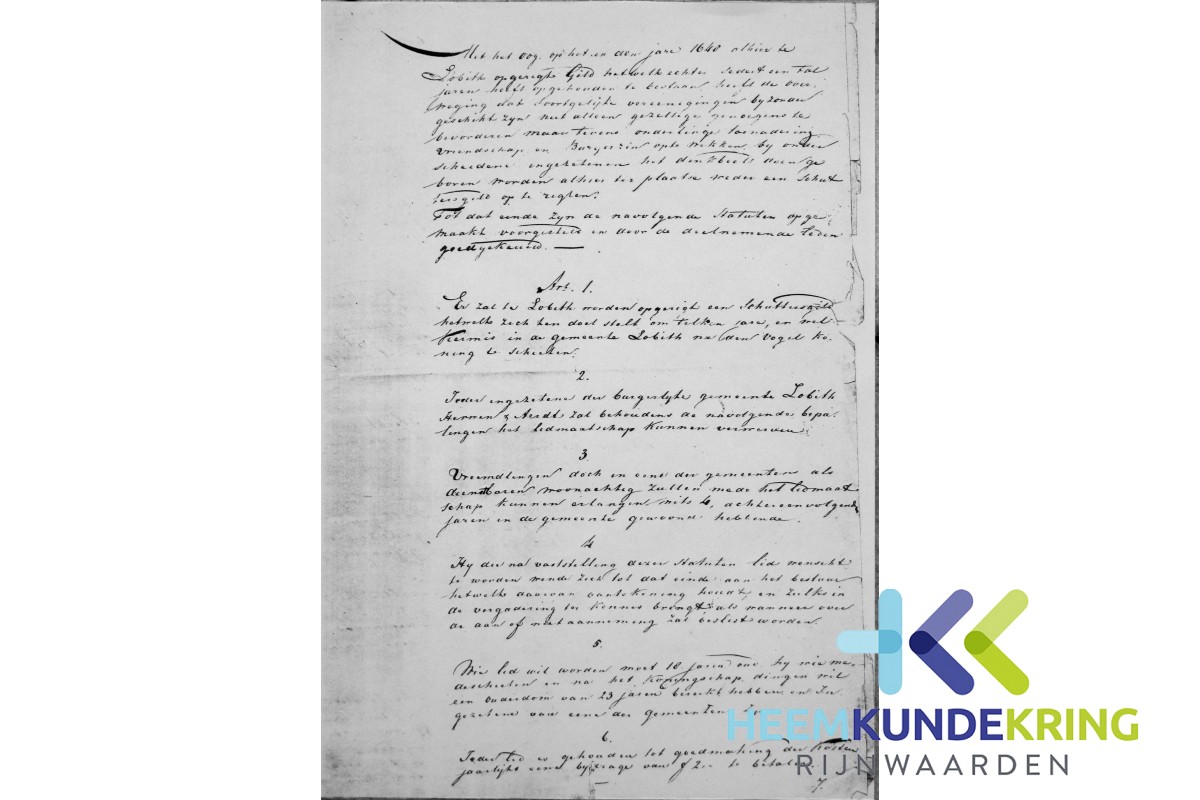 Met het oog op het in den jare 1640 alhier te
Lobith opgerigte Gild hetwelk echter sedert een tal
jaren heeft opgehouden te bestaan, heeft de over
weging dat soortgelijke vereenigingen byzonder
geschikt zyn niet alleen gezellige genoegens te
bevorderen maar tevens onderlinge toenadering
vriendschap en Burgerzin op te wekken, by onder
scheidene ingezetenen het denkbeeld doen ge
boren worden alhier ter plaatse weder een Schut
tersgild op te rigten.
Tot dat einde zyn de navolgende Statuten opge
maakt voorgesteld en door de deelnemende leden
goedgekeurd. —
Art. 1.
Er zal te Lobith worden opgerigt een Schuttersgild
hetwelk zich ten doel stelt om telken jare, en wel
Kermis in de gemeente Lobith na den vogel ko-
ning te schieten.
2.
Ieder ingezetene der burgerlyke gemeente Lobith
Herwen & Aerdt zal behoudens de navolgende bepa-
lingen het lidmaatschap kunnen verwerven.
3
Vreemdlingen doch in eene der gemeenten als
dienstboren woonachtig zullen mede het lidmaat
schap kunnen erlangen mits 4, achtereenvolgende
jaren in de gemeente gewoond hebbende.
4
Hy die na vaststelling dezer Statuten lid wenscht
te worden wende zich tot dat einde aan het bestuur
hetwelk daarvan aantekening houdt, en zulks in
de vergadering ter kennis brengt als wanneer over
de aan of niet aanneming zal beslist worden.
5.
Wie lid wil worden moet 18 jaren oud zy wie me-
deschieten en na het Koningschap dingen wil
een ouderdom van 23 jaren bereikt hebben en In
gezetene van eene der gemeenten zyn
6.
Ieder lid is gehouden tot goedmaking der kosten
jaarlyks eene bydrage van f 2 te betalen.
7.
HEEMKUNDEKRING
RIJNWAARDEN